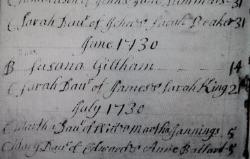 C Sarah Dau.r of John & Sarah Deaker 31
June 1730
B Susana Gillham 14
C Sarah Dau.r of James & Sarah King 21
July 1730
C Martha Dau.r of Martha Jannings 5
C Mary Dau.r of Edward & Anne Ballard 5